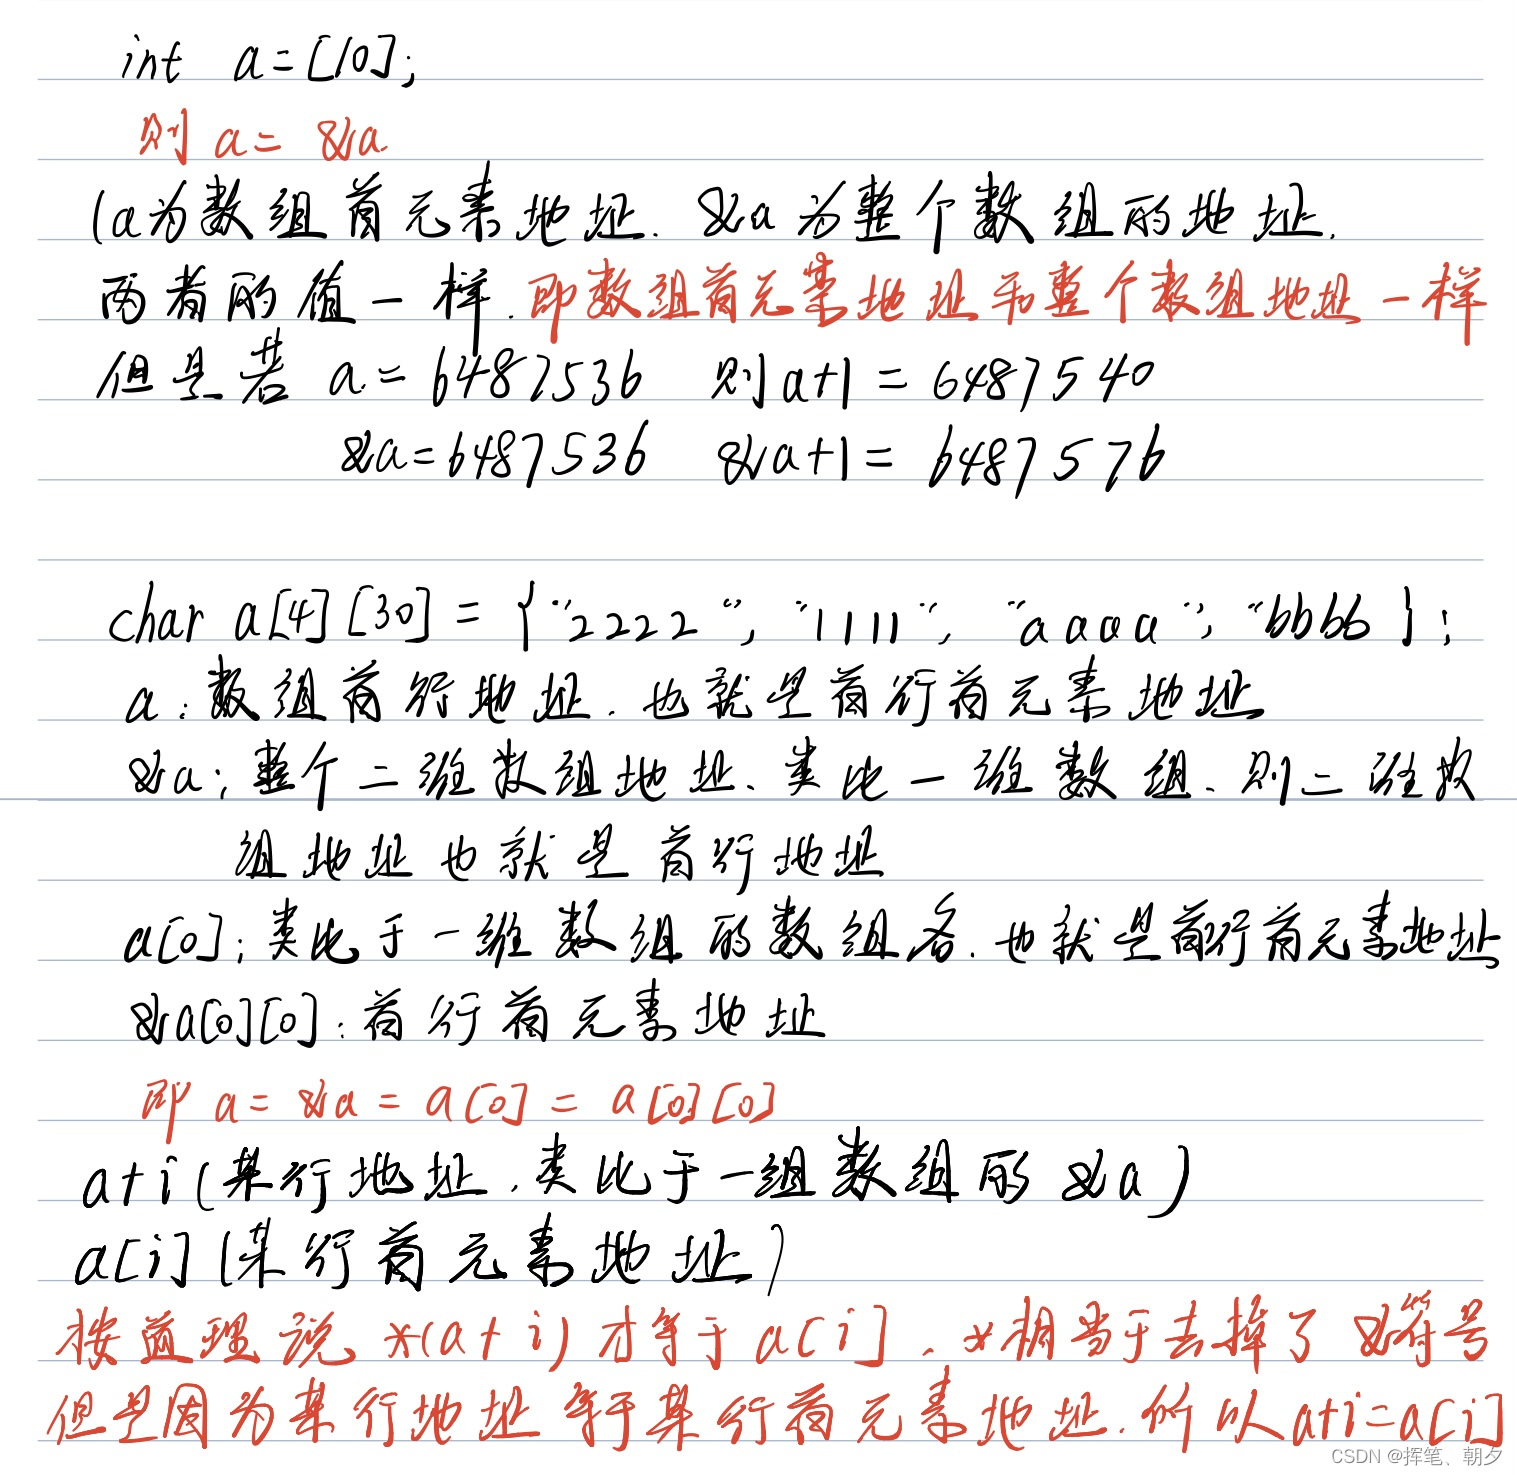 int a=[10];
则 a= &a
(a为数组首元素地址. &a为整个数组的地址.
两者的值一样. 即数组首元素地址和整个数组地址一样
但是若 a=6487536 则a+1=6487540
&a=6487536 &a+1=6487576
char a[4][30]={"2222", "1111", "aaaa", "bbbb};
a:数组首行地址.也就是首行首元素地址
&a:整个二维数组地址、类比一维数组、则二维数
组地址也就是首行地址
a[0]:类比于一维数组的数组名.也就是首行首元素地址
&a[0][0]:首行首元素地址
即 a=&a=a[0]=a[0][0]
a+i(某行地址.类比于一组数组的&a)
a[i](某行首元素地址)
按道理说 *(a+i)才等于a[i]. *相当于去掉了&符号
但是因为某行地址等于某行首元素地址.所以a+i=a[i]
CSDN @挥笔、朝夕